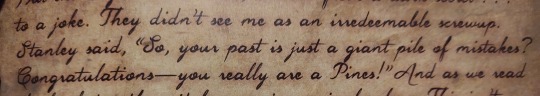 to a joke. They didn't see me as an irredeemable screwup.
Stanley said, "So, your past is just a giant pile of mistakes?
Congratulations—you really are a Pines!" And as we read